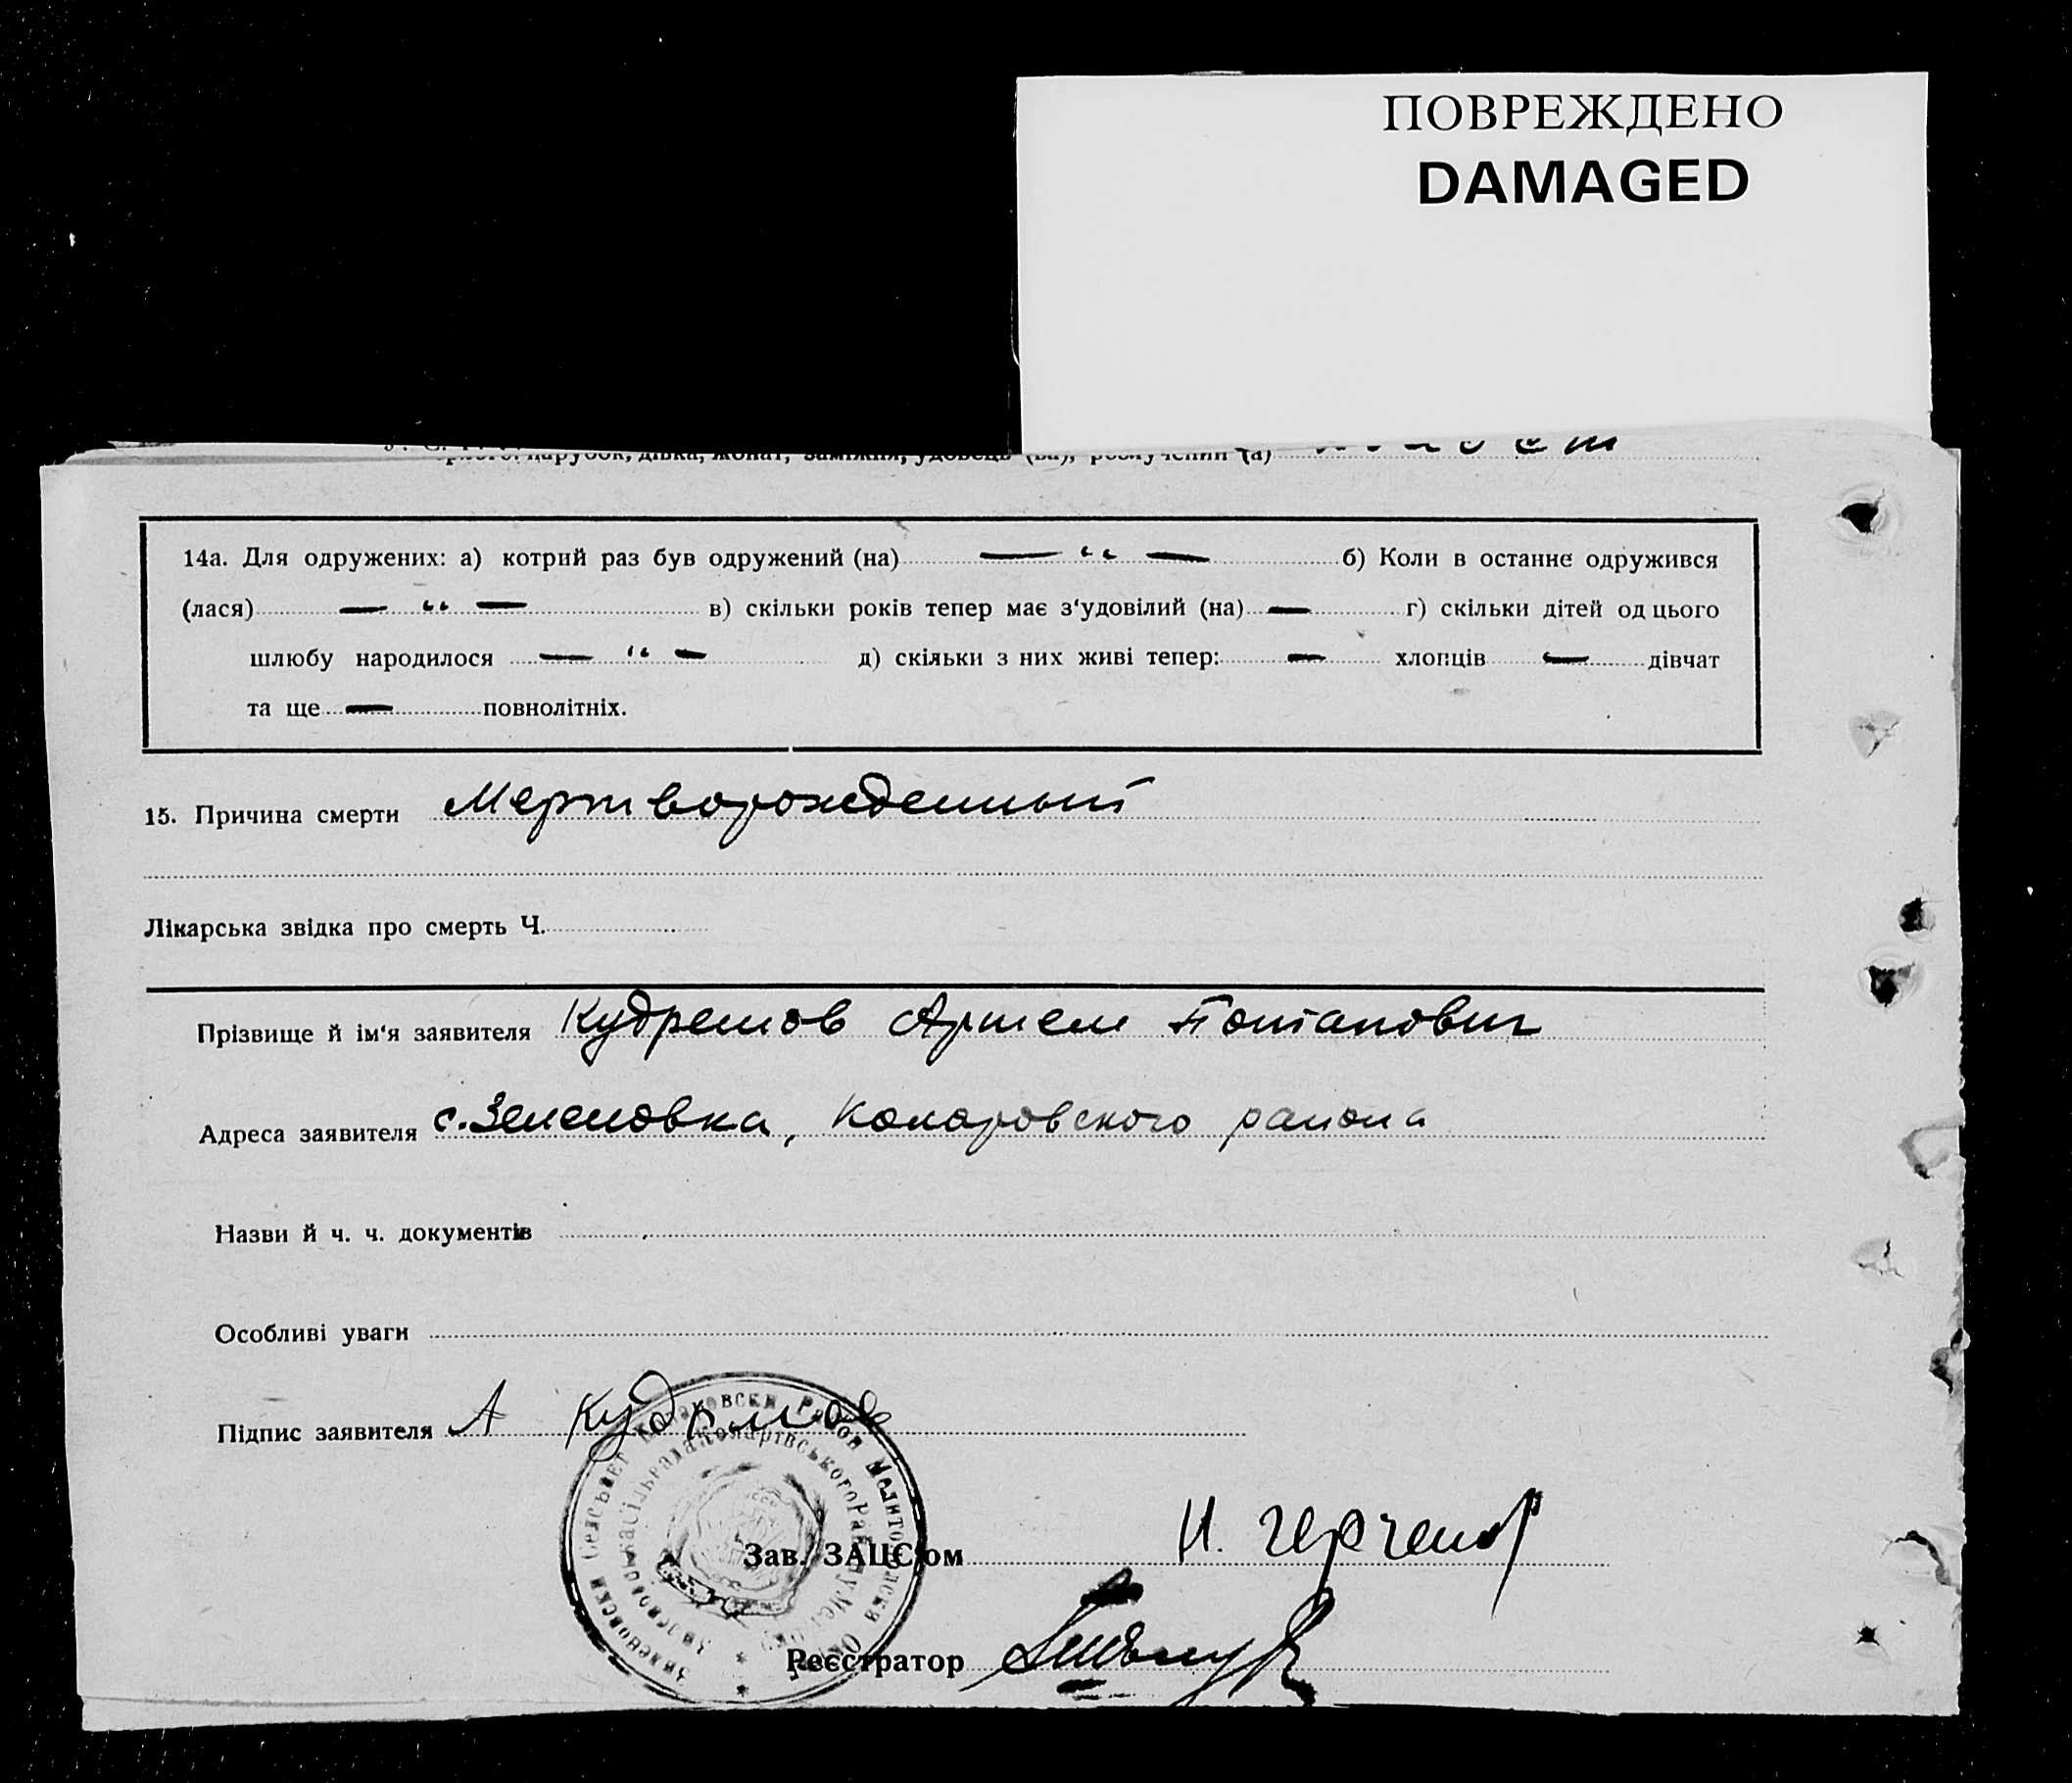 ПОВРЕЖДЕНО
DAMAGED
парубок, дівка, жонат, заміжня, удовець (ва), розлучений (а)
14а. Для одружених: а) котрий раз був одружений (на) — “ — б) Коли в останнє одружився
(лася) — “ — в) скільки років тепер має з‘удовілий (на) — г) скільки дітей од цього
шлюбу народилося — “ — д) скільки з них живі тепер: — хлопців — дівчат
та ще — повнолітніх.
15. Причина смерти Мертворожденный
Лікарська звідка про смерть Ч.
Прізвище й ім‘я заявителя Артем Потапович
Адреса заявителя с. Зеленовка, Коларовского района
Назви й ч. ч. документів
Особливі уваги
Підпис заявителя А
Зав. ЗАЦС‘ом Н.
Реєстратор